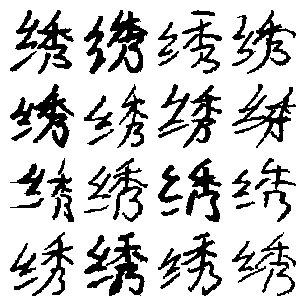 绣绣绣绣
绣绣绣绣
绣绣绣绣
绣绣绣绣